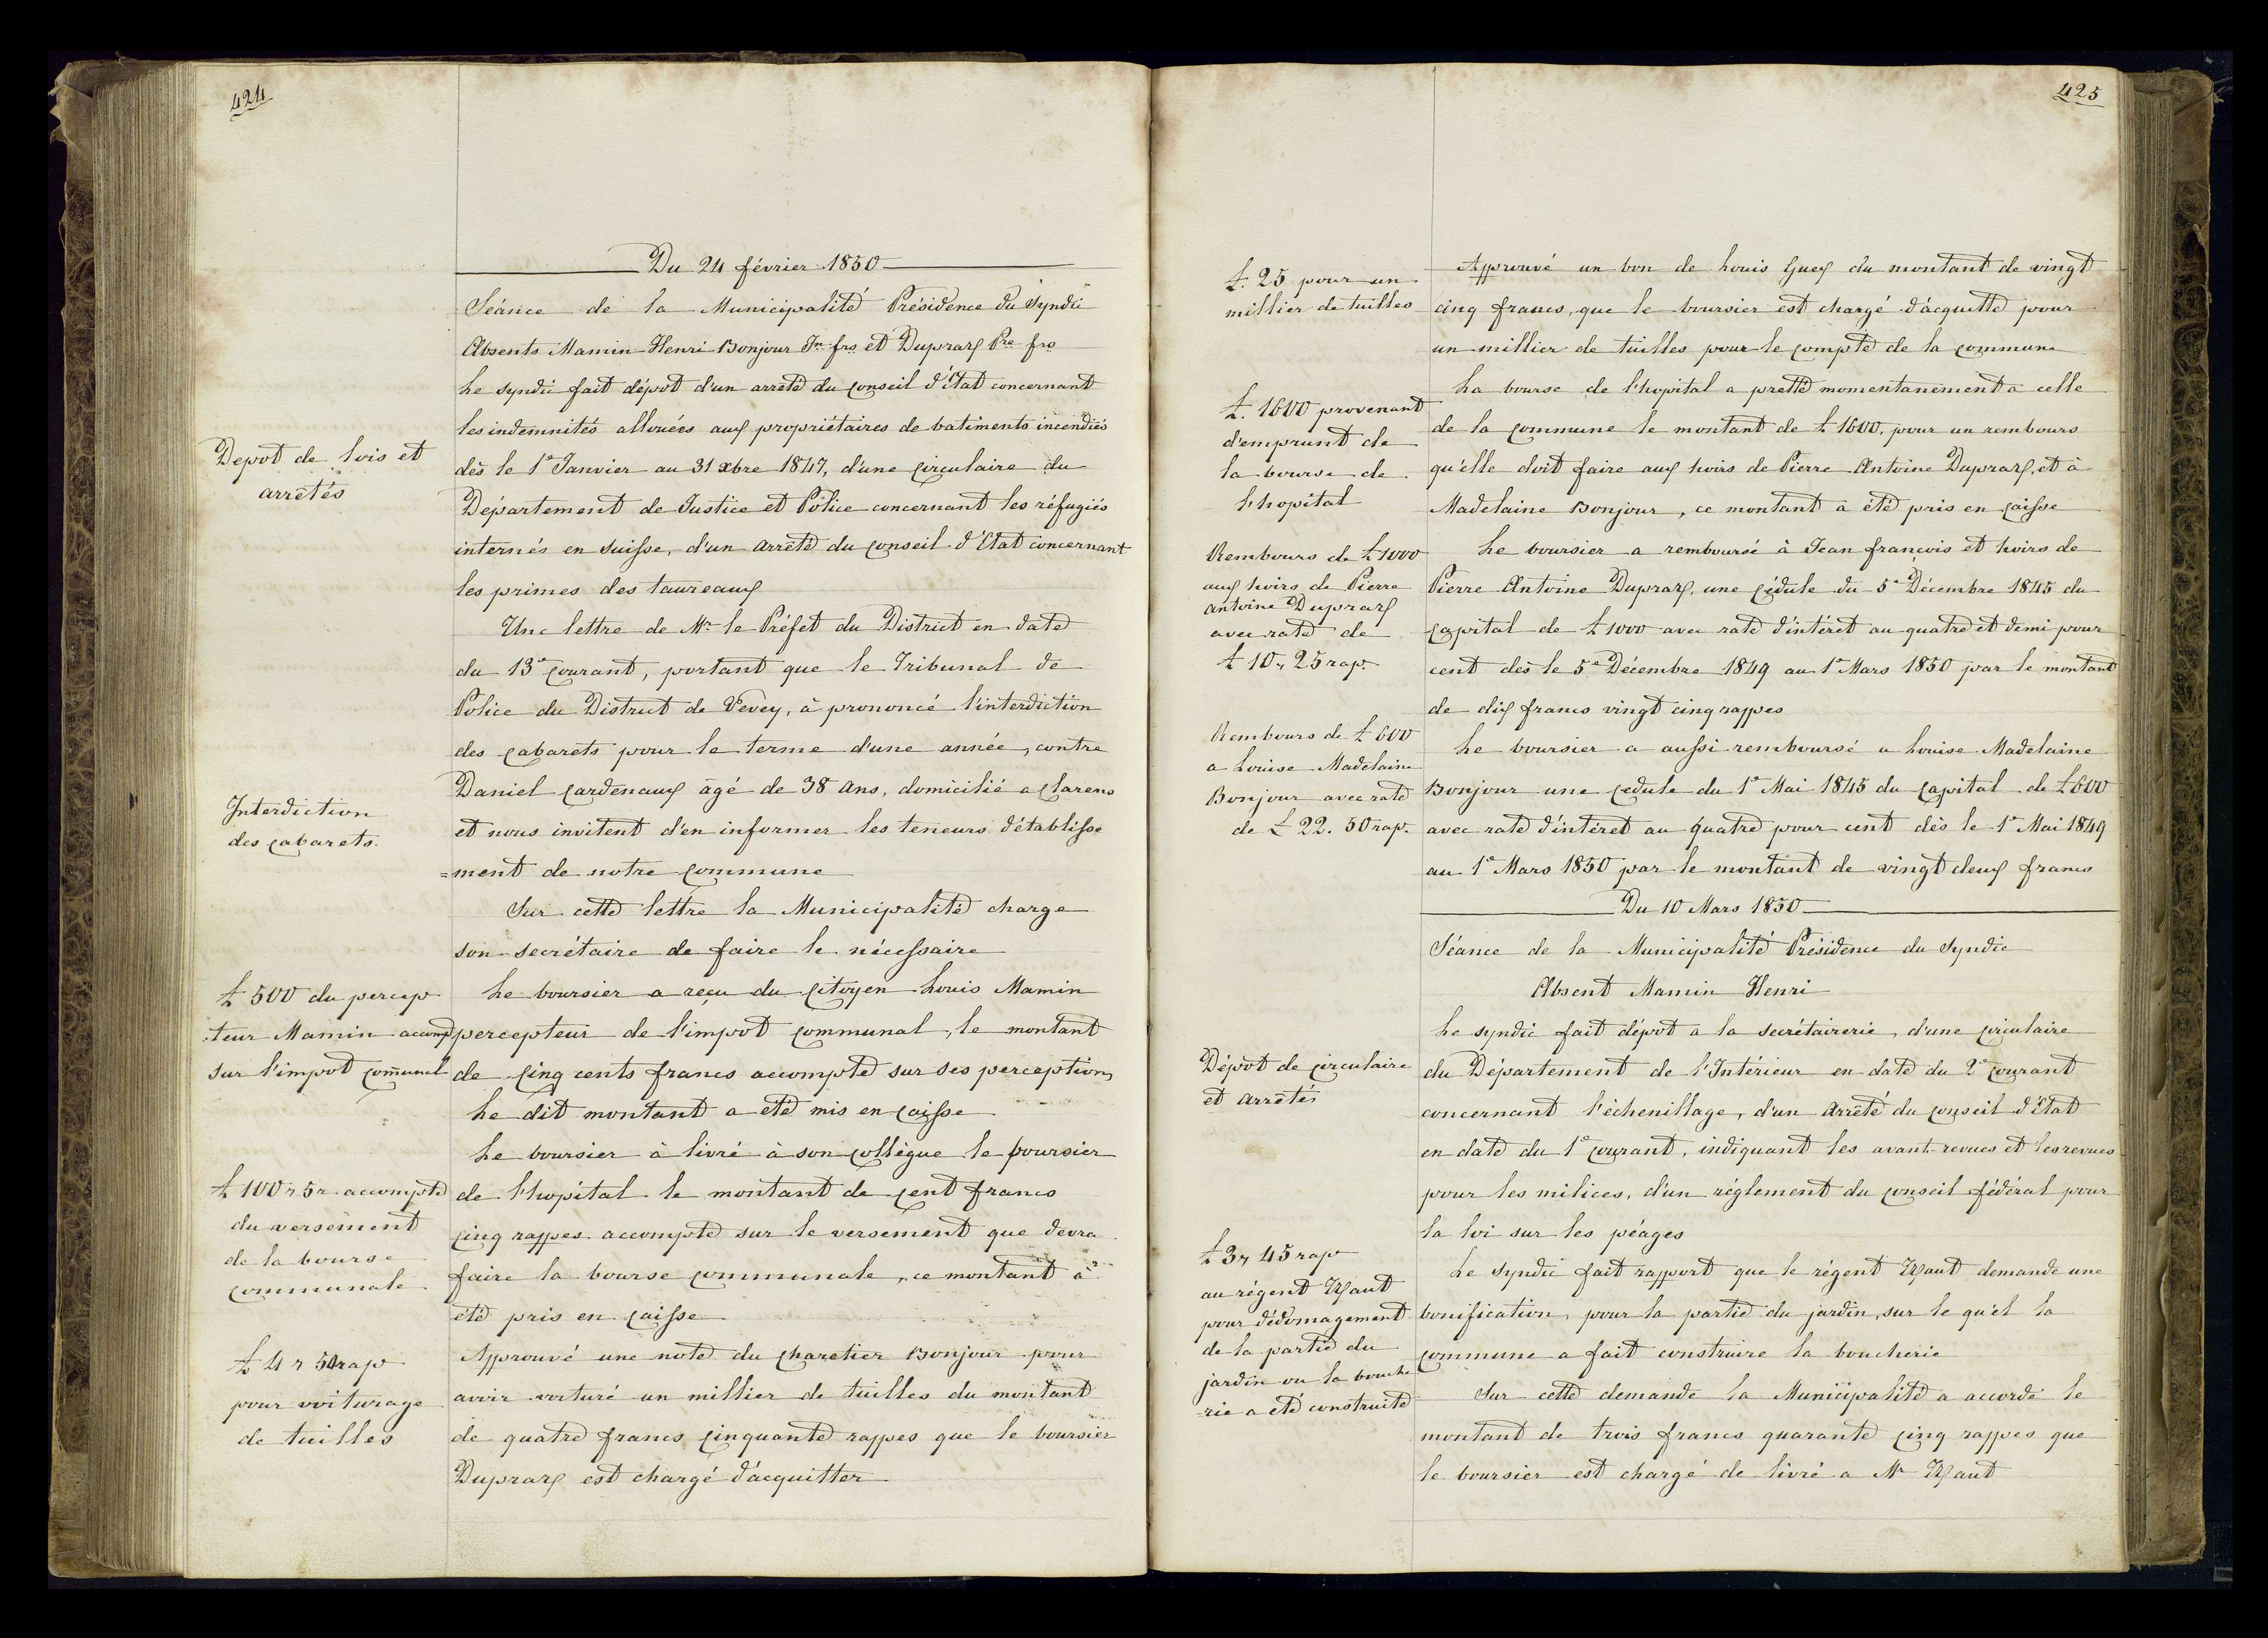 424
Du 24 février 1850
Séance de la Municipalité Présidence du Syndic
Absents Mamin Henri Bonjour Jn frs et Dupraz Pre frs
Depot de lois et
arrêtés
Le syndic fait dépot d'un arreté du conseil d'Etat concernant
les indemnités allouées aux propriétaires de batiments incendiés
dès le 1e Janvier au 31 xbre 1847, d'une circulaire du
Département de Justice et Police concernant les réfugiés
internés en suisse, d'un arrêté du conseil d'Etat concernant
les primes des taureaux
Une lettre de Mr le Préfet du District en date
du 13e courant, portant que le Tribunal de
Police du District de Vevey, à prononcé l'interdiction
des cabarets pour le terme d'une année, contre
Interdiction
des cabarets.
Daniel Cardenaux âgé de 38 ans, domicilié a Clarens
et nous invitent d'en informer les teneurs d'établisse
=ment de notre commune
Sur cette lettre la Municipalité charge
son secrétaire de faire le nécessaire
£ 500 du percep
:teur Mamin accompt
sur l'impot comunal
Le boursier a reçu du citoyen Louis Mamin
percepteur de l'impot communal, le montant
de cinq cents francs accompte sur ses perceptions
Le dit montant a été mis en caisse
£ 100 " 5 " accompte
du versement
de la bourse
communale
Le boursier à livré à son collègue le boursier
de l'hopital le montant de cent francs
cinq rappes accompte sur le versement que devra
faire la bourse communale, ce montant à
été pris en caisse
£ 4 " 50 rap
pour voiturage
de tuilles
Approuvé une note du charetier Bonjour pour
avoir voituré un millier de tuilles du montant
de quatre francs cinquante rappes que le boursier
Dupraz est chargé d'acquitter
425
£. 25 pour un
millier de tuilles
Approuvé un bon de Louis Guex du montant de vingt
cinq francs, que le boursier est chargé d'acquitté pour
un millier de tuilles pour le compte de la commune
£. 1600 provenant
d'emprunt de
la bourse de
l'hopital
La bourse de l'hopital a pretté momentanément à celle
de la commune le montant de £ 1600, pour un rembours
qu'elle doit faire aux hoirs de Pierre Antoine Dupraz, et à
Madelaine Bonjour, ce montant à été pris en caisse
Rembours de £ 1000
aux hoirs de Pierre
antoine Dupraz
avec rate de
£ 10 " 25 rap.
Le boursier a remboursé à Jean francois et hoirs de
Pierre Antoine Dupraz, une cédule du 5e Décembre 1845 du
capital de £ 1000 avec rate d'intéret au quatre et demi pour
cent dès le 5e Décembre 1849 au 1e Mars 1850 par le montant
de dix francs vingt cinq rappes
Rembours de £ 600
a Louise Madelaine
Bonjour avec rate
de £ 22. 50 rap.
Le boursier a aussi remboursé a Louise Madelaine
Bonjour une cedule du 1e Mai 1845 du capital de £ 600
avec rate d'intéret au quatre pour cent dès le 1e Mai 1849
au 1e Mars 1850 par le montant de vingt deux francs
Du 10 Mars 1850
Séance de la Municipalité Présidence du Syndic
Absent Mamin Henri
Dépot de circulaire
et arrêtés
Le syndic fait dépot à la secrétairerie, d'une circulaire
du Département de l'Intérieur en date du 2e courant
concernant l'échenillage, d'un arrêté du conseil d'Etat
en date du 1e courant, indiquant les avant-revues et les revues
pour les milices, d'un réglement du conseil fédéral pour
la loi sur les péages
£ 3 " 45 rap
au régent
pour dédomagement
de la partie du
jardin ou la bouche
=rie a été construite
Le syndic fait rapport que le régent demande une
bonification, pour la partie du jardin, sur le qu'el la
commune a fait construire la boucherie
Sur cette demande la Municipalité a accordé le
montant de trois francs quarante cinq rappes que
le boursier est chargé de livré a Mr